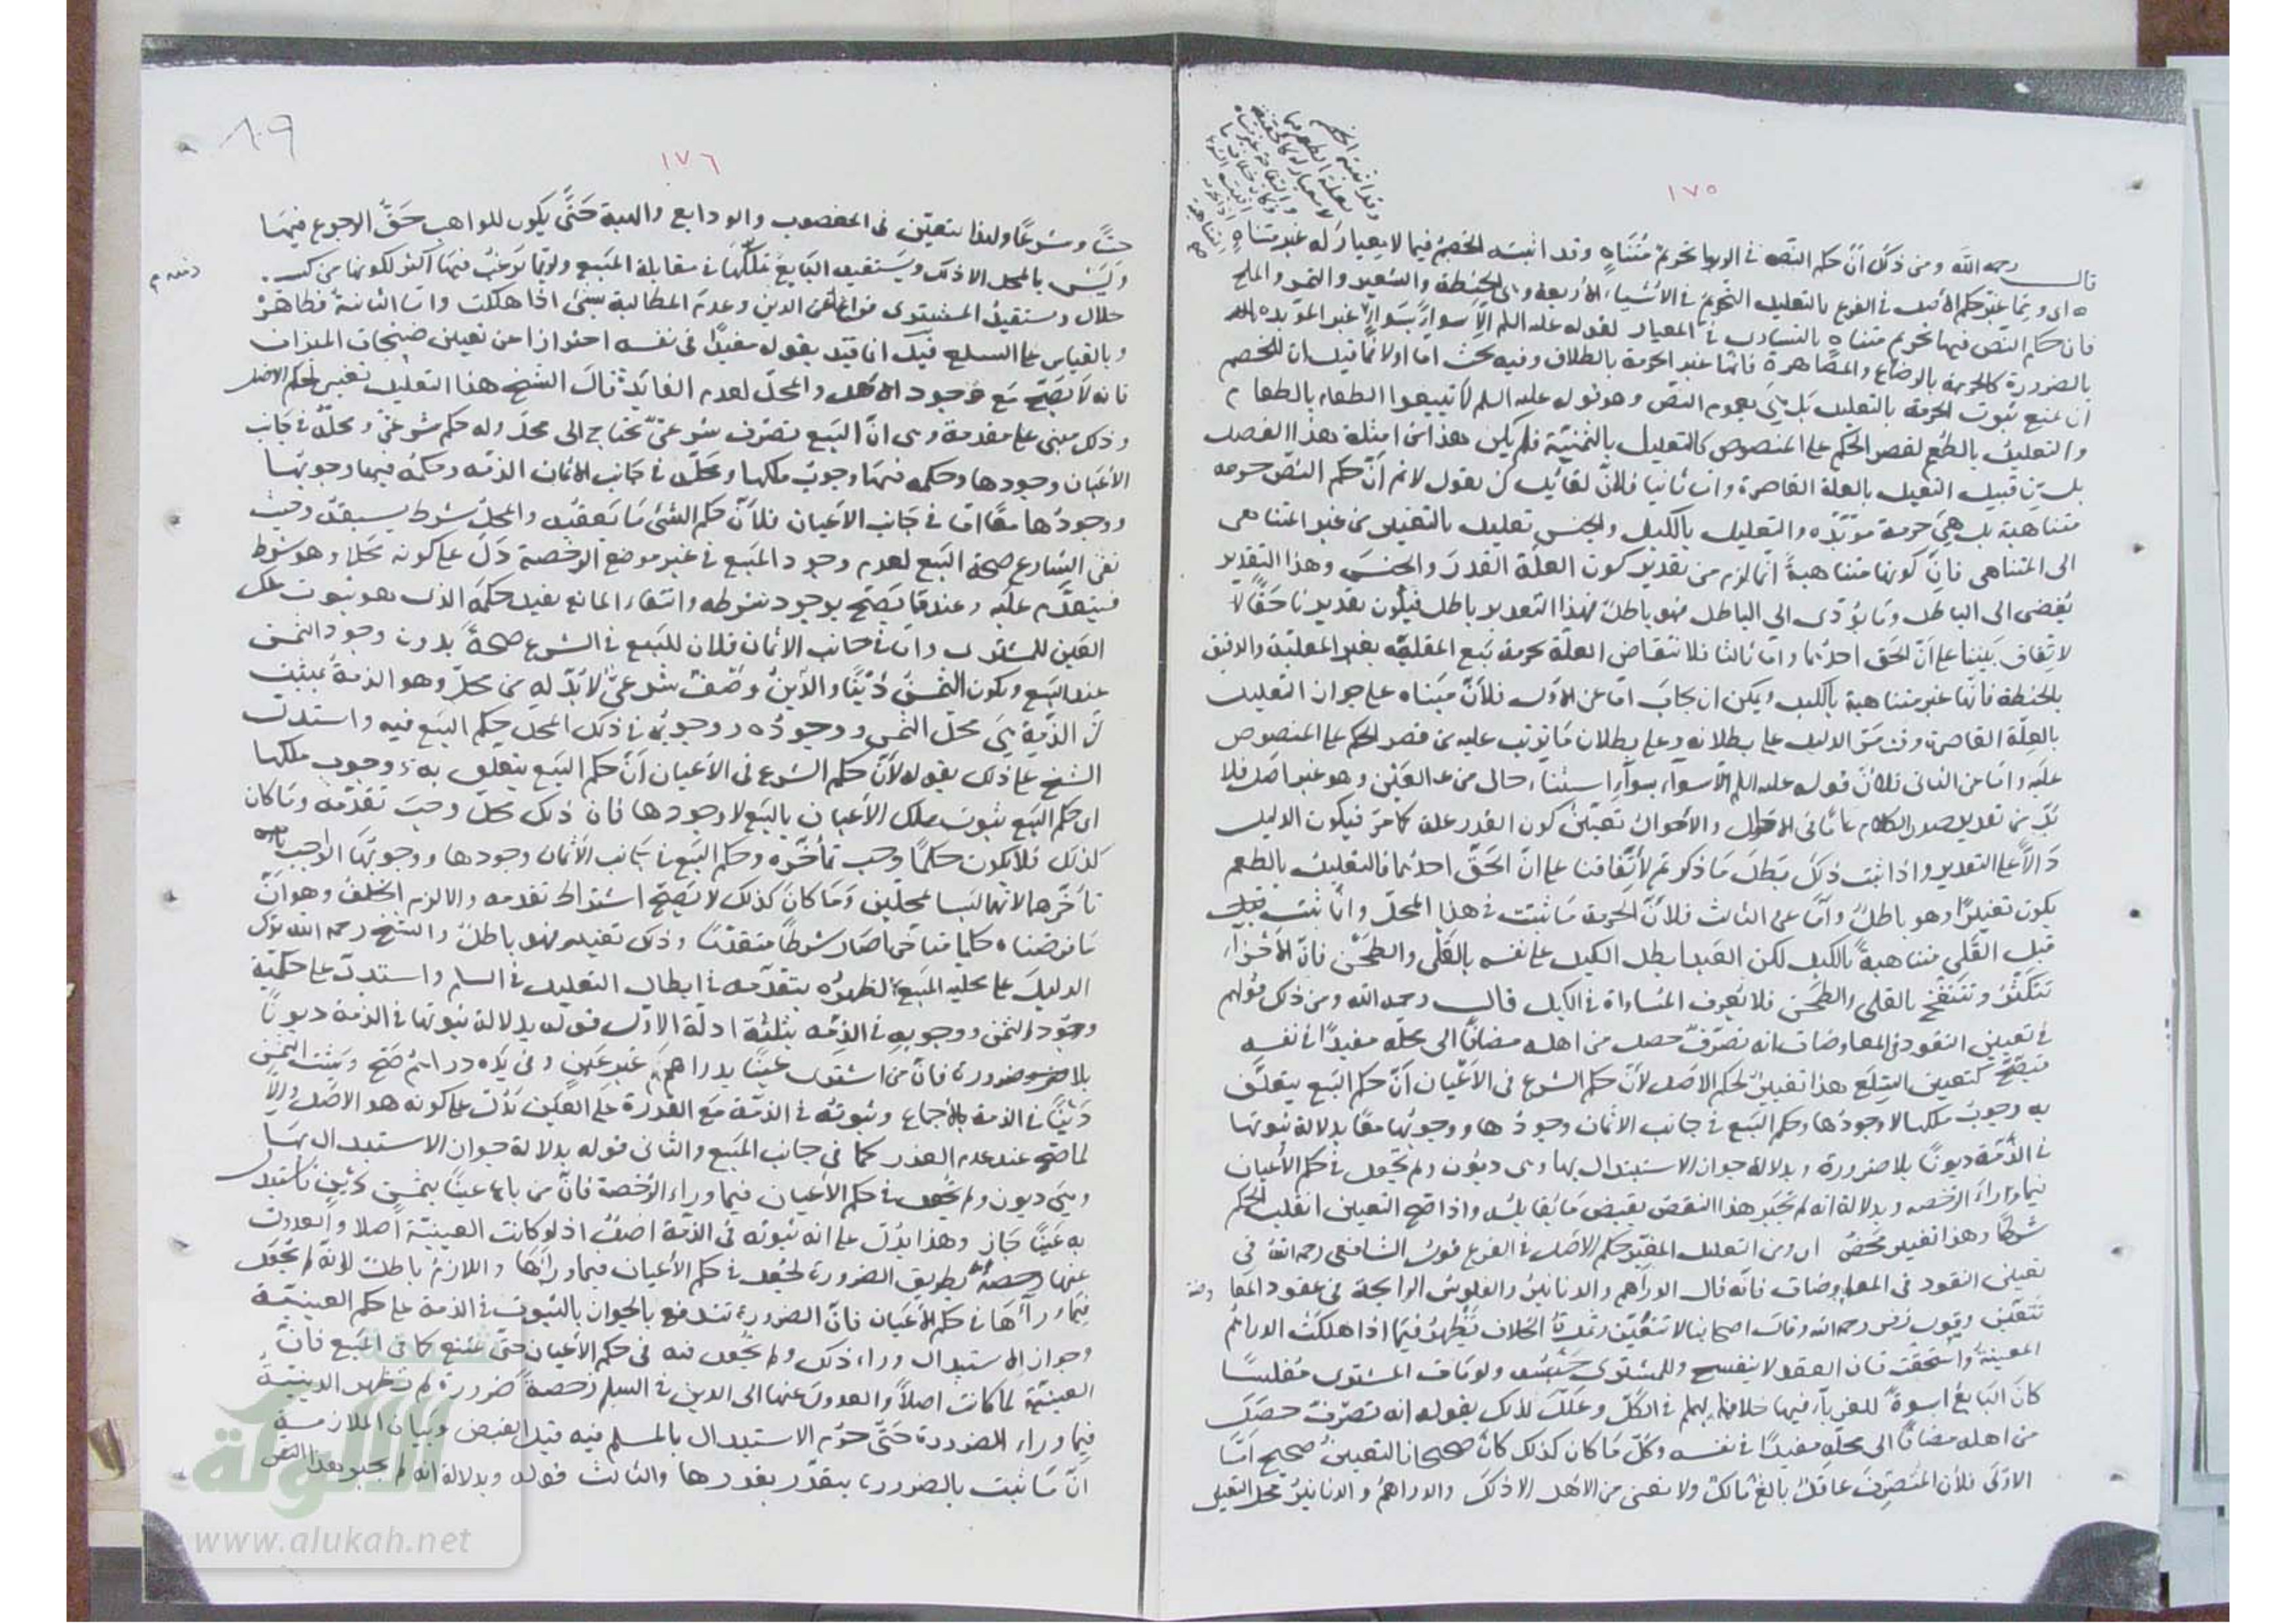 ١٧٥
قال رحمه الله ومن ذلك ان حكم النص في الربوا تحريم متناه وقد اثبته الخصم فيما لا معيار له غير متناه
اى ومما غير حكم الاصل في الفرع بالتعليل التحريم في الاشياء الاربعة وهى الحنطة والشعير والتمر والملح
فان حكم النص فيها تحريم متناه بالتساوى في المعيار لقوله عليه السلم الا سواء بسواء غير المؤبده
بالضرورة كالحرمة بالرضاع والمصاهرة فانها غير الحرمة بالطلاق وفيه بحث اما اولا فما قيل ان للخصم
ان يمنع ثبوت الحرمة بالتعليل بل هي بعموم النص وهو قوله عليه السلم لا تبيعوا الطعام بالطعام
والتعليل بالطعم لقصر الحكم على المنصوص كالتعليل بالثمنية فلم يكن هذا من امثلة هذا الفصل
بل من قبيل التعليل بالعلة القاصرة واما ثانيا فلان لقائل ان يقول لا نم ان حكم النص حرمة
متناهية بل هي حرمة مؤبده والتعليل بالكيل والجنس تعليل بالتغيير من غير المتناهى
الى المتناهى فان كونها متناهية انما لزم من تقدير كون العلة القدر والجنس وهذا التقدير
يفضى الى الباطل وما يؤدى الى الباطل فهو باطل فهذا التقدير باطل فيكون تقديرنا حقا
لاتفاق بيننا على ان الحق احدهما واما ثالثا فلانتقاض العلة بحرمة بيع المقلية بغير المقلية والدقيق
بالحنطة فانها غير متناهية بالكيل ويمكن ان يجاب اما عن الاول فلان مبناه على جواز التعليل
بالعلة القاصرة وقد مر الدليل على بطلانه وعلى بطلان ما ترتب عليه من قصر الحكم على المنصوص
عليه واما عن الثانى فلان قوله عليه السلم الا سواء بسواء استثناء حال من الاعيان وهو غير اصل فلا
بد من تقدير صدر الكلام عاما في الاحوال والاحوال تعين كون القدر علة كما مر فيكون الدليل
دالا على التقدير واذا ثبت ذلك بطل ما ذكرتم لاتفاقنا على ان الحق احدهما فالتعليل بالطعم
يكون تغييرا وهو باطل واما عن الثالث فلان الحرمة ما ثبتت في هذا المحل وانما ثبتت
قبل القلى متناهية بالكيل لكن العبد ابطل الكيل على نفسه بالقلى والطحن فان الاجزاء
تتكثر وتنتفخ بالقلى والطحن فلا تعرف المساواة في الكيل قال رحمه الله ومن ذلك قولهم
في تعيين النقود في المعاوضات انه تصرف حصل من اهله مضافا الى محله مفيدا في نفسه
فيصح كتعيين السلع هذا تغيير لحكم الاصل لان حكم الشرع في الاعيان ان حكم البيع يتعلق
به وجوب ملكها لا وجودها وحكم البيع في جانب الاثمان وجودها ووجوبها معا بدلالة ثبوتها
في الذمة ديونا بلا ضرورة وبدلالة جواز الاستبدال بها وهى ديون ولم تجعل في حكم الاعيان
فيما وراء الرخصه وبدلالة انه لم يجبر هذا النقص بقبض ما يقابله واذا صح التعيين انقلب الحكم
شرطا وهذا تغيير محض اى ومن التعليل المغير حكم الاصل في الفرع قول الشافعى رحمه الله في
تعيين النقود في المعاوضات فانه قال الدراهم والدنانير والفلوس الرايجة في عقود المعا
تتعين وقول زفر رحمه الله وقال اصحابنا لا تتعين وثمرة الخلاف تظهر فيما اذا هلكت الدراهم
المعينة او استحقت فان العقد لا ينفسخ وللمشترى حبسه ولو مات المشترى مفلسا
كان البايع اسوة للغرماء فيها خلافا لهما في الكل وعلل لذلك بقوله انه تصرف حصل
من اهله مضافا الى محله مفيدا في نفسه وكل ما كان كذلك كان صحيحا فالتعيين صحيح اما
الاول فلان المتصرف عاقل بالغ مالك ولا نعنى من الاهل الا ذلك والدراهم والدنانير محل التعيين
٨٩
١٧٦
حسا وشرعا ولهذا يتعين في المغصوب والودايع والهبة حتى يكون للواهب حق الرجوع فيها
وليس بالمحل الا ذلك ويستفيد البايع تملكها في مقابلة المبيع وربما يرغب فيها اكثر لكونها من كسب
حلال ويستفيد المشترى فراغ ذمته عن الدين وعدم المطالبة بشئ اذا هلكت واما الثانية فظاهرة
وبالقياس على السلع قيل انما قيد بقوله مفيدا في نفسه احترازا عن تعيين صنجات الميزان
فانه لا يصح مع وجود الاهل والمحل لعدم الفائدة قال الشيخ هذا التعليل تغيير لحكم الاصل
وذلك مبنى على مقدمة وهى ان البيع تصرف شرعى يحتاج الى محل وله حكم شرعى ومحله في جانب
الاعيان وجودها وحكمه فيها وجوب ملكها ومحله في جانب الاثمان الذمه وحكمه فيها وجوبها
ووجودها معا اما في جانب الاعيان فلان حكم الشئ ما يعقبه والمحل شرط يسبقه وحيث
نفى الشارع صحة البيع لعدم وجود المبيع في غير موضع الرخصة دل على كونه محلا وهو شرط
فيتقدم عليه وعندما يصح بوجود شرطه وانتفاء المانع يفيد حكمه الذى هو ثبوت ملك
العين للمشترى واما في جانب الاثمان فلان للبيع في الشرع صحة بدون وجود الثمن
عند البيع ويكون الثمن دينا والدين وصف شرعى لا بد له من محل وهو الذمة فيثبت
ان الذمة هي محل الثمن ووجوده ووجوبه في ذلك المحل حكم البيع فيه واستدل
الشيخ على ذلك بقوله لان حكم الشرع في الاعيان ان حكم البيع يتعلق به وجوب ملكها
اى حكم البيع ثبوت ملك الاعيان بالبيع لا وجودها فان ذلك محل وجب تقدمه وما كان
كذلك فلا يكون حكما وجب تأخره وحكم البيع في جانب الاثمان وجودها ووجوبها الواجب
تأخرهما لانهما ليسا بمحلين وما كان كذلك لا يصح اشتراط تقدمه والا لزم الخلف وهو ان
ما فرضناه حكما متاخرا صار شرطا متقدما وذلك تغيير فهو باطل والشيخ رحمه الله ترك
الدليل على محلية المبيع لظهوره بتقدمه في ابطال التعليل في السلم واستدل على حكمية
وجود الثمن ووجوبه في الذمه بثلثة ادلة الاول قوله بدلالة ثبوتها في الذمة ديونا
بلا ضرورة فان من اشترى عينا بدراهم غير عين وفي يده دراهم صح ويثبت الثمن
دينا في الذمة بالاجماع وثبوته في الذمة مع القدرة على العين يدل على كونه هو الاصل والا
لما صح عند عدم العذر كما في جانب المبيع والثانى قوله بدلالة جواز الاستبدال بها
وهى ديون ولم تجعل في حكم الاعيان فيما وراء الرخصة فان من باع عينا بثمن دين فاستبدل
به عينا جاز وهذا يدل على انه ثبوته في الذمة اصل اذ لو كانت العينية اصلا والعدول
عنها رخصة بطريق الضرورة لجعل في حكم الاعيان فيما وراءها واللازم باطل لانه لم يجعل
فيما وراءها في حكم الاعيان فان الضرورة تندفع بالجواز بالثبوت في الذمة على حكم العينية
وجواز الاستبدال وراء ذلك ولم يجعل فيه في حكم الاعيان حتى يمتنع كما في المبيع فان
العينية لما كانت اصلا والعدول عنها الى الدين في السلم رخصة ضرورة لم تظهر الدينية
فيما وراء الضرورة حتى حرم الاستبدال بالمسلم فيه قبل القبض وبيان الملازمة
ان ما ثبت بالضرورة يتقدر بقدرها والثالث قوله وبدلالة انه لم يجبر هذا النقص
الألوكة
www.alukah.net